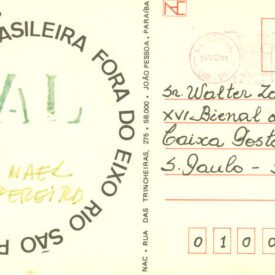 ASILEIRA FORA DO EIXO RIO SÃO P
AL
MAEL
NAC - RUA DAS TRINCHEIRAS, 275 - 58.000 - JOÃO PESSOA, PARAÍBA
NAC
Sr. Walter Za
XVI Bienal d
Caixa Posta
S. Paulo - S
0 1 0 0